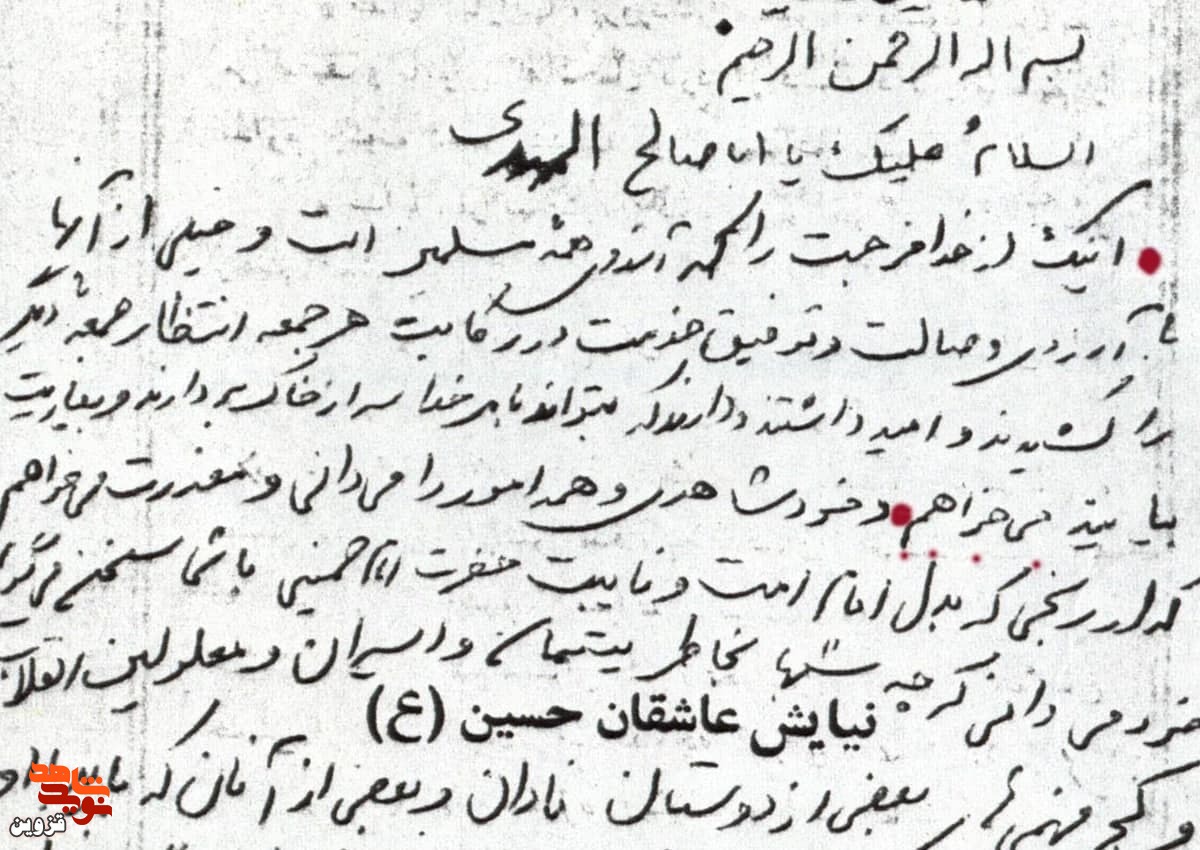 بسم اله الرحمن الرحیم
السلامُ علیک یا اباصالح المهدی
اینک از خدا فرجت را که آرزوی همهٔ مسلمین است و خیلی از آنها
با آرزوی وصالت و توفیق خدمت در رکابت هر جمعه انتظار جمعهٔ دیگر
را کشیدند و امید داشتند و دارند که بتوانند به امر خدا سر از خاک بردارند و بیاریت
بیایند می‌خواهم و خود شاهدی و همه امور را می‌دانی و معذرت می‌خواهم
که از رنجی که بدل امام امت و نایبت حضرت امام خمینی با شما سخن می‌گویم
خود می دانی که چه شبها بخاطر یتیمان و اسیران و معلولین انقلاب
نیایش عاشقان حسین (ع)
و کج فهمی بعضی از دوستان نادان و بعضی از آنان که
شاهد
نوید
قزوین